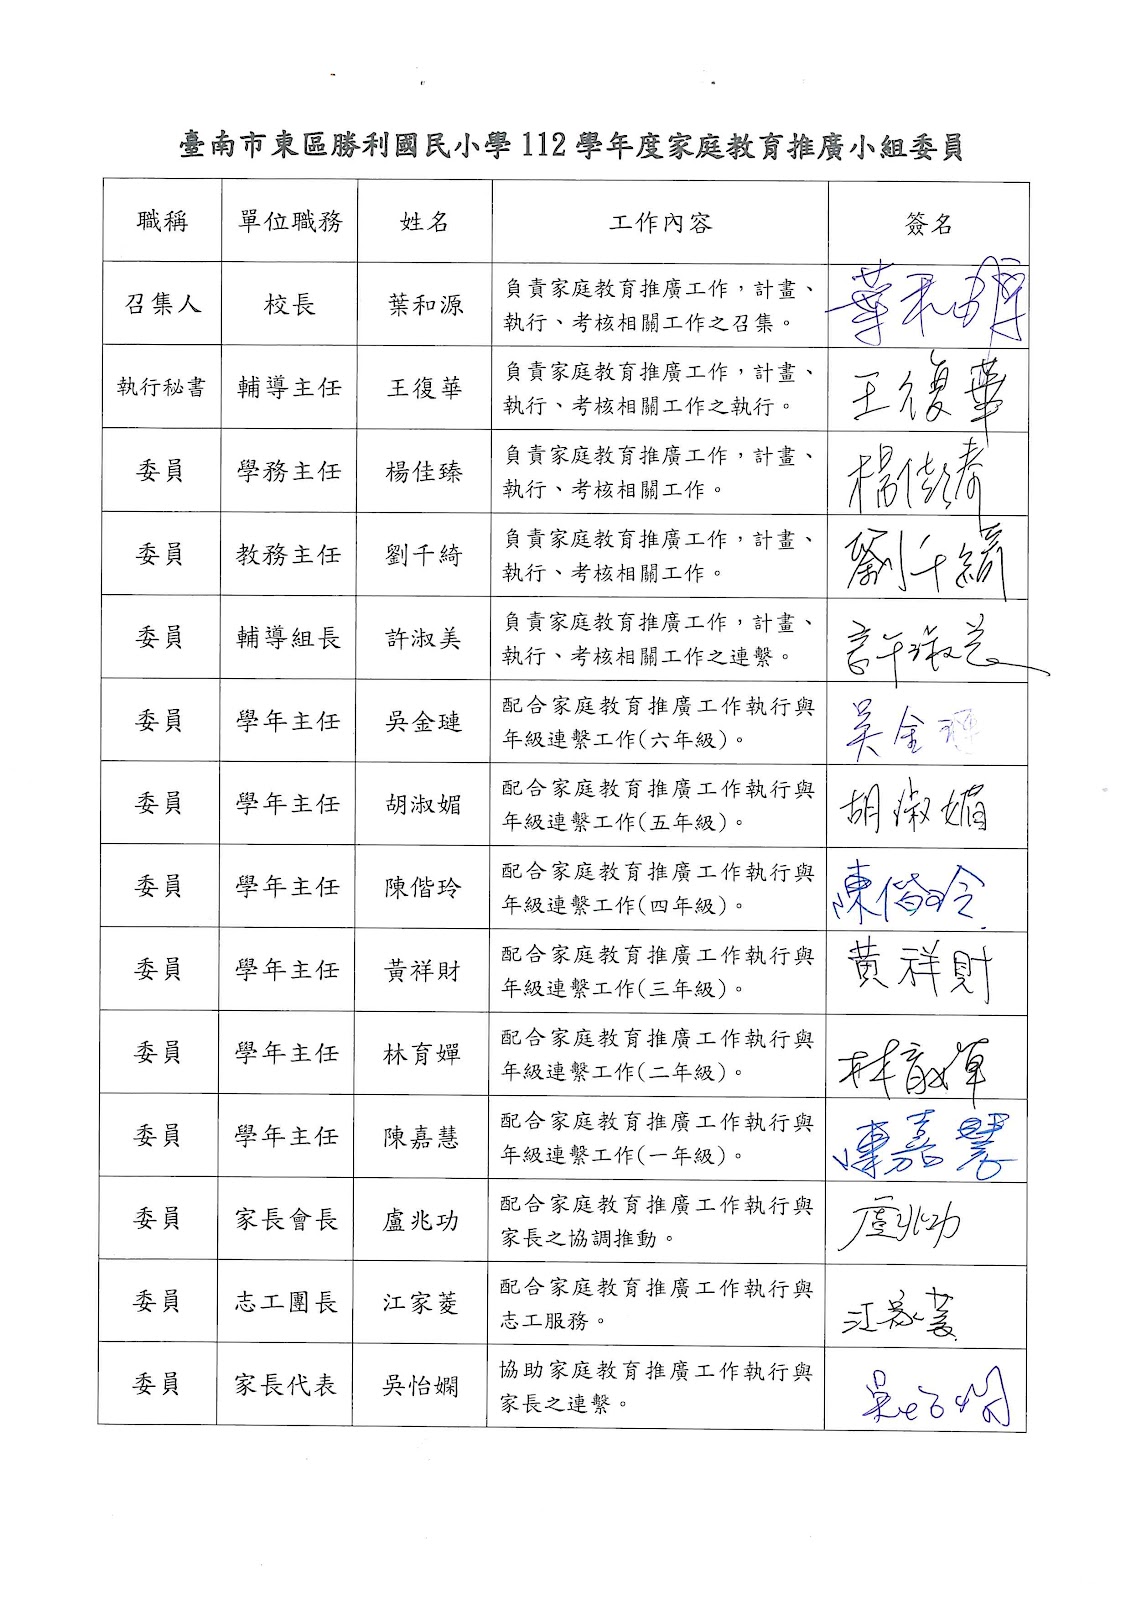 臺南市東區勝利國民小學 112 學年度家庭教育推廣小組委員
職稱 單位職務 姓名 工作內容 簽名
召集人 校長 葉和源 負責家庭教育推廣工作，計畫、
執行、考核相關工作之召集。
葉和源
執行秘書 輔導主任 王復華 負責家庭教育推廣工作，計畫、
執行、考核相關工作之執行。
王復華
委員 學務主任 楊佳臻 負責家庭教育推廣工作，計畫、
執行、考核相關工作。
楊佳臻
委員 教務主任 劉千綺 負責家庭教育推廣工作，計畫、
執行、考核相關工作。
劉千綺
委員 輔導組長 許淑美 負責家庭教育推廣工作，計畫、
執行、考核相關工作之連繫。
許淑美
委員 學年主任 吳金璉 配合家庭教育推廣工作執行與
年級連繫工作(六年級)。
吳金璉
委員 學年主任 胡淑媚 配合家庭教育推廣工作執行與
年級連繫工作(五年級)。
胡淑媚
委員 學年主任 陳偕玲 配合家庭教育推廣工作執行與
年級連繫工作(四年級)。
陳偕玲
委員 學年主任 黃祥財 配合家庭教育推廣工作執行與
年級連繫工作(三年級)。
黃祥財
委員 學年主任 林育嬋 配合家庭教育推廣工作執行與
年級連繫工作(二年級)。
林育嬋
委員 學年主任 陳嘉慧 配合家庭教育推廣工作執行與
年級連繫工作(一年級)。
陳嘉慧
委員 家長會長 盧兆功 配合家庭教育推廣工作執行與
家長之協調推動。
盧兆功
委員 志工團長 江家菱 配合家庭教育推廣工作執行與
志工服務。
江家菱
委員 家長代表 吳怡嫻 協助家庭教育推廣工作執行與
家長之連繫。
吳怡嫻